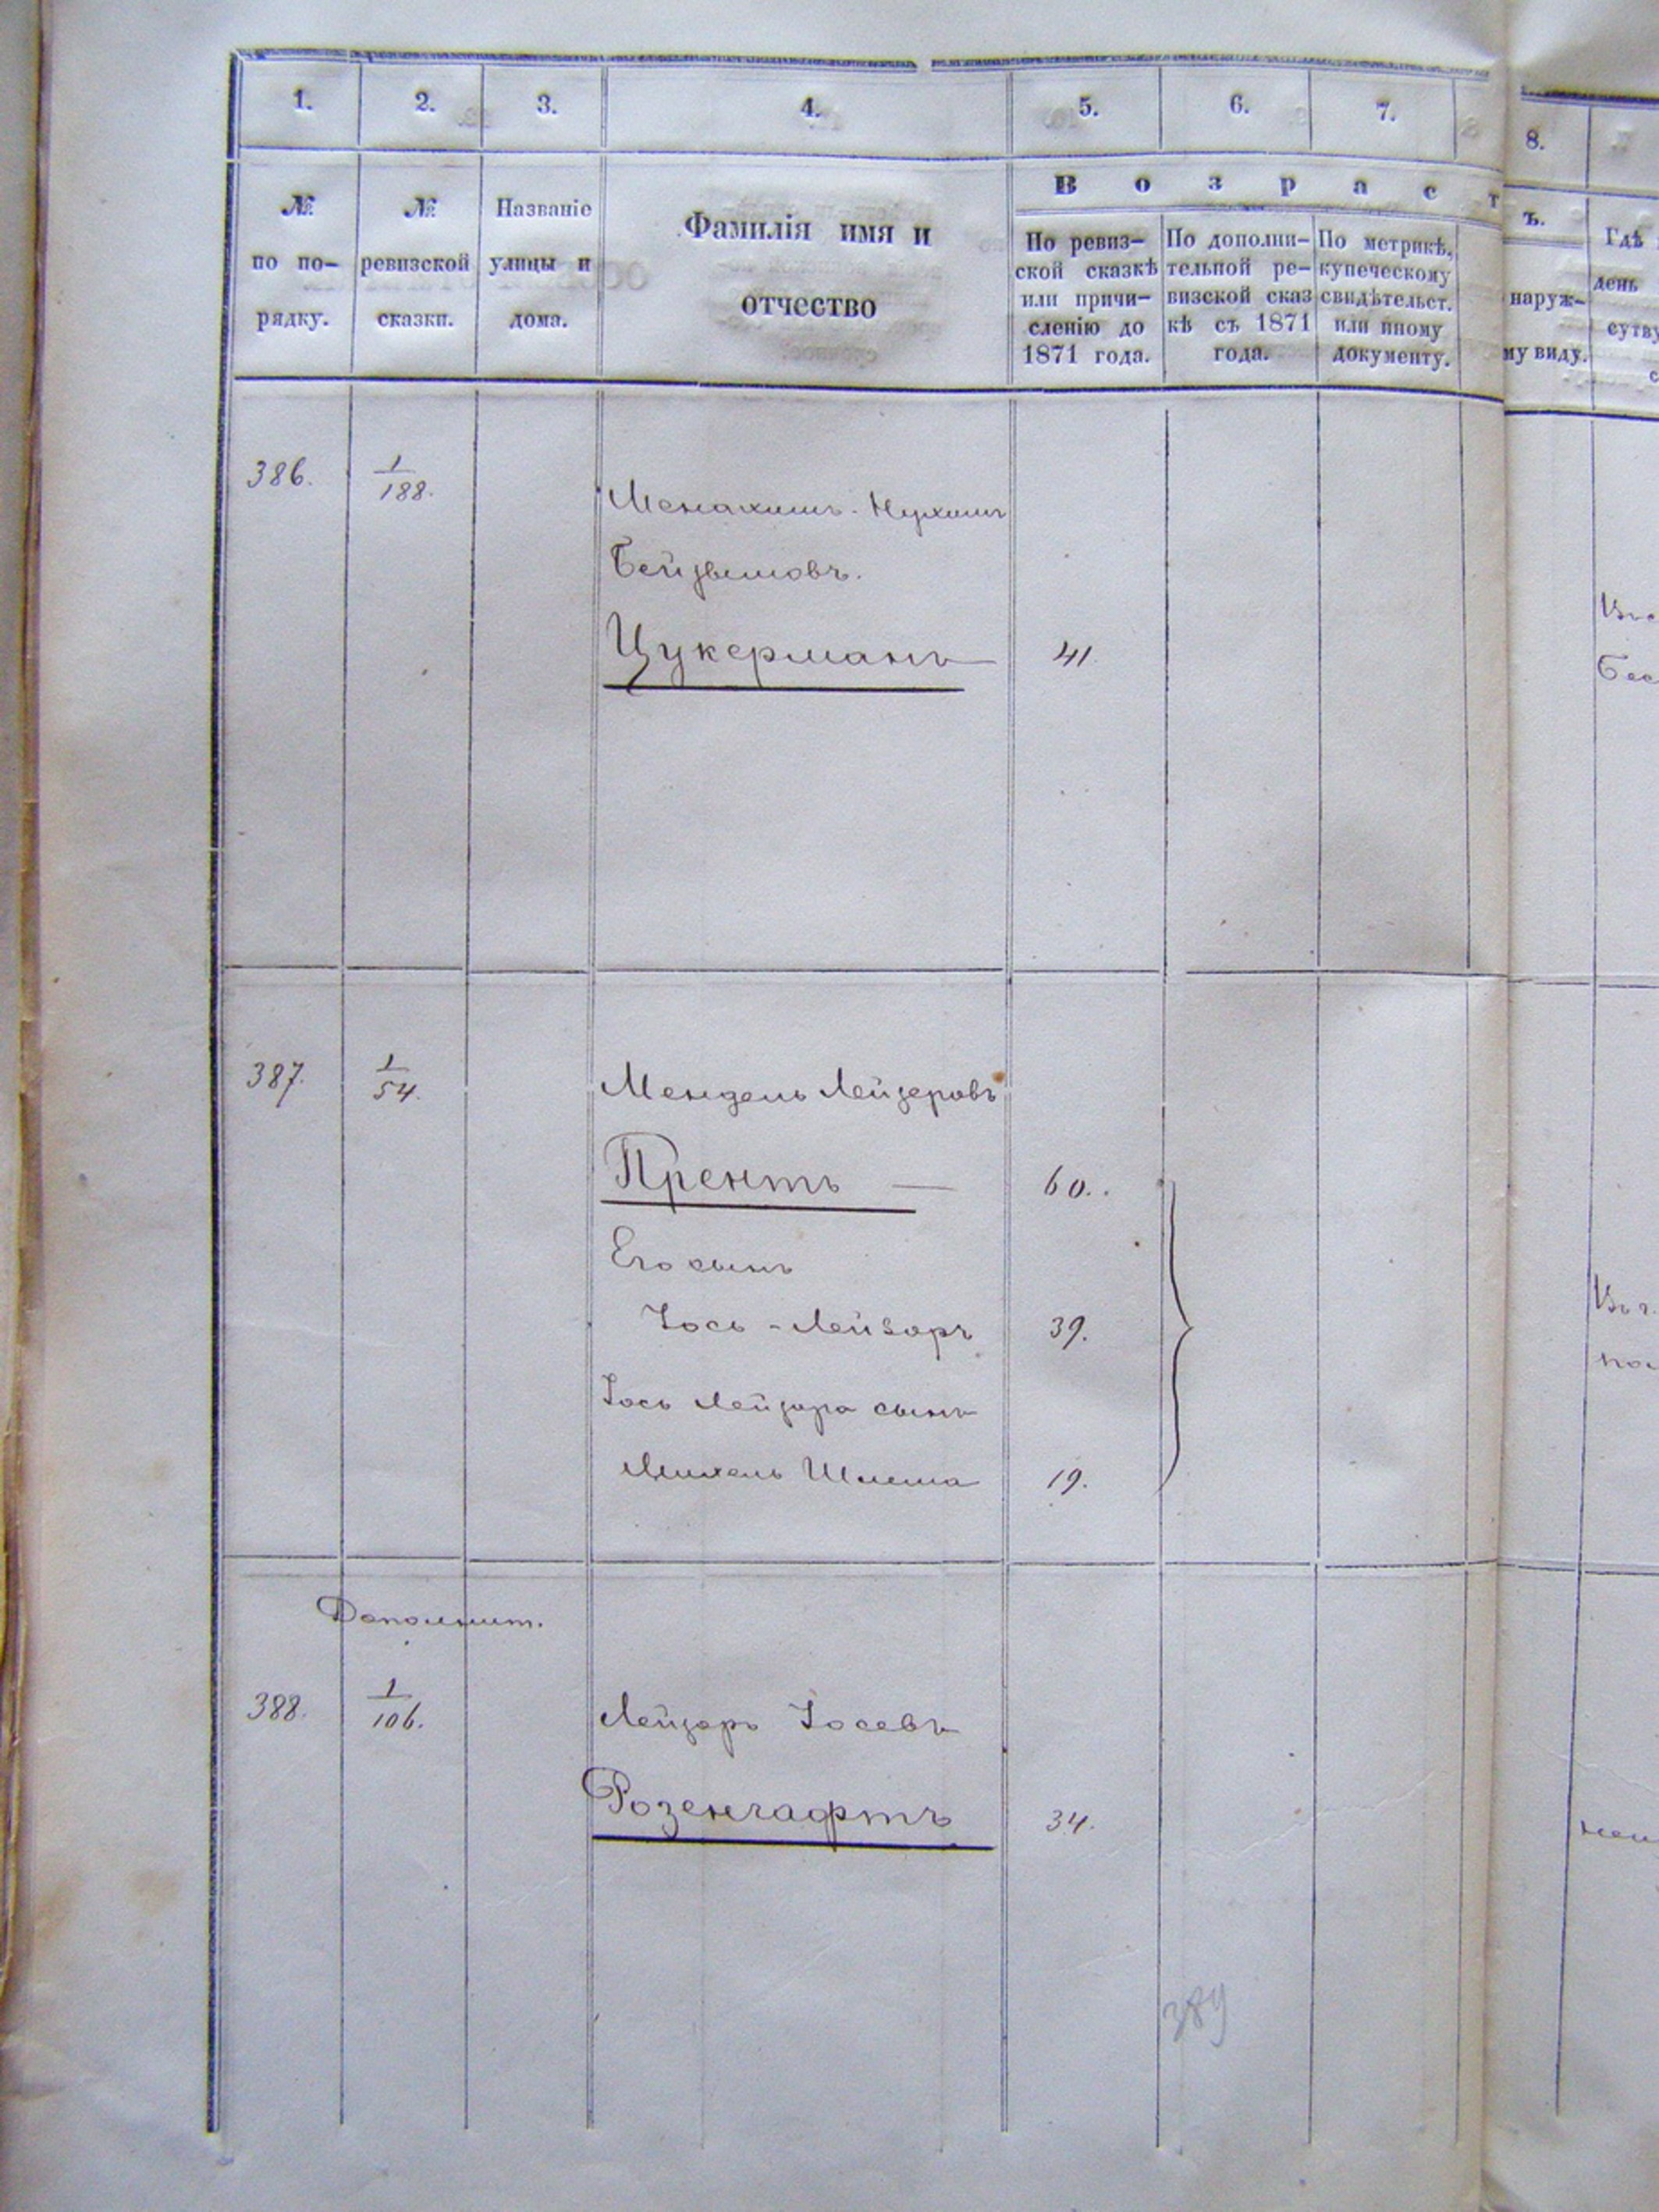 1. 2. 3. 4. 5. 6. 7. 8.
В о з р а с т ъ.
№ по по-рядку.
№ ревизской сказки.
Названіе улицы и дома.
Фамилія имя и отчество
По ревиз-
ской сказкѣ
или причи-
сленію до
1871 года.
По дополни-
тельной ре-
визской сказ
кѣ съ 1871
года.
По метрикѣ,
купеческому
свидѣтельст.
или иному
документу.
наруж-
му виду.
Гдѣ
день
сутву
386. 1/188. Менахимъ-Нухимъ
Цукерманъ 41.
387. 1/54. Мендель Лейзеровъ
Прентъ — 60.
Его сынъ
Іось-Лейзоръ 39.
Іось Лейзора сынъ
Михель Шлема 19.
Дополнит.
388. 1/106. Лейзоръ Іосевъ
Розенгафтъ 34.
389